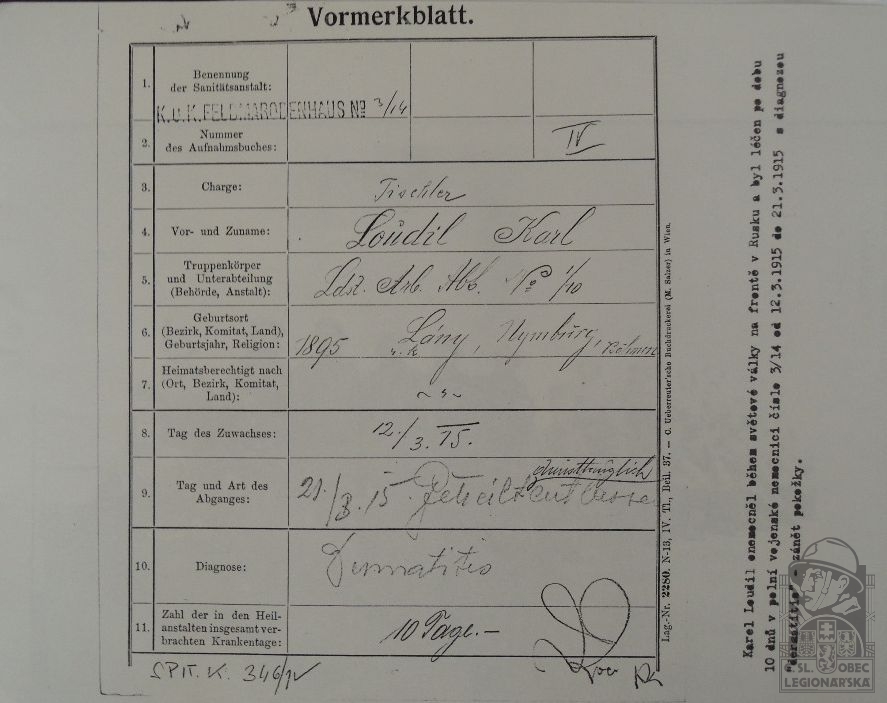 Vormerkblatt.
1. Benennung
der Sanitätsanstalt:
K.u.K. FELDMARODENHAUS No 3/14
2. Nummer
des Aufnahmsbuches:
IV
3. Charge:
Tischler
4. Vor- und Zuname:
Loudil Karl
5. Truppenkörper
und Unterabteilung
(Behörde, Anstalt):
Ldst. Arb. Abt. No 1/10
6. Geburtsort
(Bezirk, Komitat, Land),
Geburtsjahr, Religion:
1895 Lány, Nymburg, Böhmen
r. k.
7. Heimatsberechtigt nach
(Ort, Bezirk, Komitat,
Land):
8. Tag des Zuwachses:
12./3. 15.
9. Tag und Art des
Abganges:
diensttauglich
21./3. 15. Geheilt entlassen
10. Diagnose:
Dermatitis
11. Zahl der in den Heil-
anstalten insgesamt ver-
brachten Krankentage:
10 Tage.-
SPIT. K. 346/IV
Lag.-Nr. 2280. N-13, IV. Tl., Beil. 37. — C. Ueberreuter'sche Buchdruckerei (M. Salzer) in Wien.
Karel Loudil onemocněl během světové války na frontě v Rusku a byl léčen po dobu
10 dnů v polní vojenské nemocnici číslo 3/14 od 12.3.1915 do 21.3.1915 s diagnozou
"dermatitis" - zánět pokožky.
ČSL. OBEC
LEGIONÁŘSKÁ